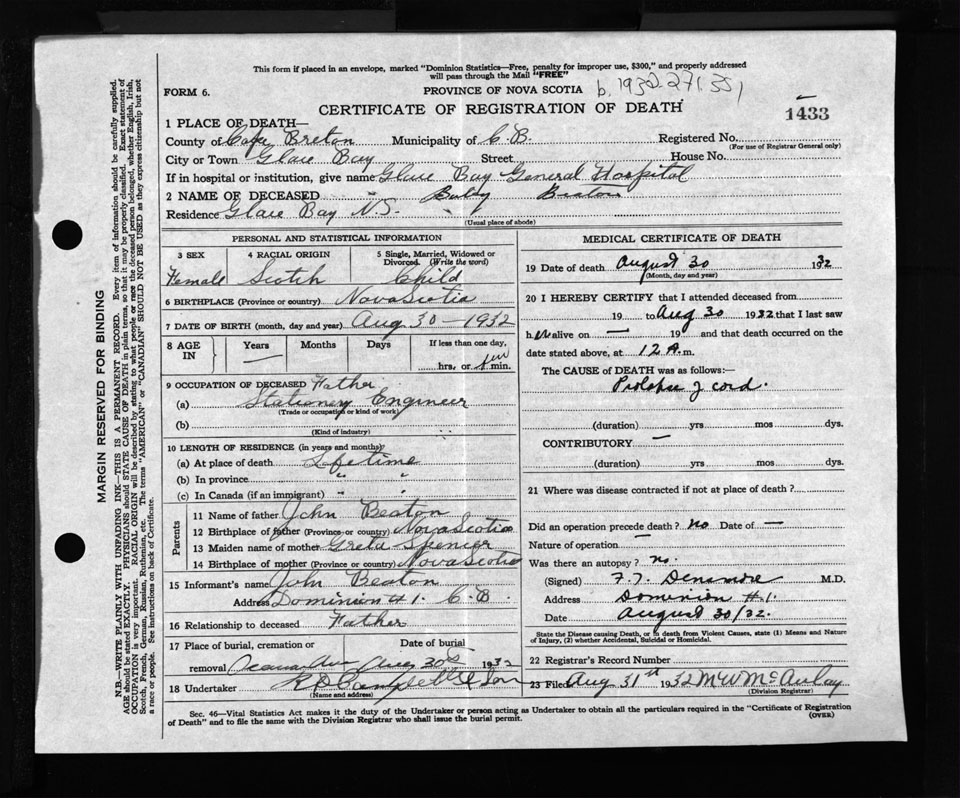 This form if placed in an envelope, marked "Dominion Statistics—Free, penalty for improper use, $300," and properly addressed
will pass through the Mail "FREE"
FORM 6.
PROVINCE OF NOVA SCOTIA b. 1932.271.351
CERTIFICATE OF REGISTRATION OF DEATH
1433
1 PLACE OF DEATH—
County of Cape Breton Municipality of C.B. Registered No.
(For use of Registrar General only)
City or Town Glace Bay Street House No.
If in hospital or institution, give name Glace Bay General Hospital
2 NAME OF DECEASED Baby Beaton
Residence Glace Bay N.S.
(Usual place of abode)
PERSONAL AND STATISTICAL INFORMATION
3 SEX 4 RACIAL ORIGIN 5 Single, Married, Widowed or
Divorced. (Write the word)
Female Scotch Child
6 BIRTHPLACE (Province or country) Nova Scotia
7 DATE OF BIRTH (month, day and year) Aug 30 — 1932
8 AGE IN Years Months Days If less than one day,
— hrs. or min.
9 OCCUPATION OF DECEASED Father
(a) Stationery Engineer
(Trade or occupation or kind of work)
(b)
(Kind of industry)
10 LENGTH OF RESIDENCE (in years and months)
(a) At place of death Lifetime
(b) In province " "
(c) In Canada (if an immigrant) " "
Parents
11 Name of father John Beaton
12 Birthplace of father (Province or country) Nova Scotia
13 Maiden name of mother Greta Spencer
14 Birthplace of mother (Province or country) Nova Scotia
15 Informant's name John Beaton
Address Dominion #1. C.B.
16 Relationship to deceased Father
17 Place of burial, cremation or Date of burial
removal Aug 30 1932
18 Undertaker & Son
(Name and address)
MEDICAL CERTIFICATE OF DEATH
19 Date of death August 30 1932
(Month, day and year)
20 I HEREBY CERTIFY that I attended deceased from
19 to Aug 30 1932 that I last saw
h er alive on — 19 and that death occurred on the
date stated above, at 12 A.m.
The CAUSE of DEATH was as follows:—
Prolapse of cord.
(duration) yrs mos dys.
CONTRIBUTORY —
(duration) yrs mos dys.
21 Where was disease contracted if not at place of death?
Did an operation precede death? no Date of —
Nature of operation —
Was there an autopsy? no.
(Signed) M.D.
Address Dominion #1.
Date August 30/32.
State the Disease causing Death, or in death from Violent Causes, state (1) Means and Nature
of Injury, (2) whether Accidental, Suicidal or Homicidal.
22 Registrar's Record Number
23 Filed Aug 31st 1932 M W McAulay
(Division Registrar)
Sec. 46—Vital Statistics Act makes it the duty of the Undertaker or person acting as Undertaker to obtain all the particulars required in the "Certificate of Registration
of Death" and to file the same with the Division Registrar who shall issue the burial permit.
(OVER)
MARGIN RESERVED FOR BINDING
N.B.—WRITE PLAINLY WITH UNFADING INK—THIS IS A PERMANENT RECORD. Every item of information should be carefully supplied.
AGE should be stated EXACTLY. PHYSICIANS should STATE CAUSE OF DEATH in plain terms, so that it may be properly classified. Exact statement of
OCCUPATION is very important. RACIAL ORIGIN will be described by stating to what people or race the deceased person belonged, whether English, Irish,
Scotch, French, German, Russian, Ruthenian, etc. The terms "AMERICAN" or "CANADIAN" SHOULD NOT BE USED as they express citizenship but not
a race or people. See instructions on back of Certificate.